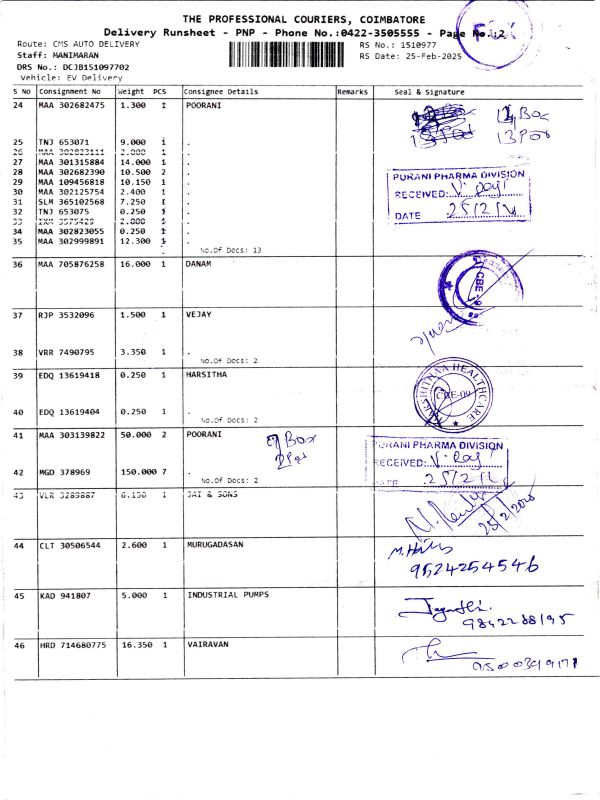 THE PROFESSIONAL COURIERS, COIMBATORE
Delivery Runsheet - PNP - Phone No.:0422-3505555 - Page No.:2
Route: CMS AUTO DELIVERY
Staff: MANIMARAN
DRS No.: DCJB151097702
Vehicle: EV Delivery
RS No.: 1510977
RS Date: 25-Feb-2025
S No Consignment No Weight PCS Consignee Details Remarks Seal & Signature
24 MAA 302682475 1.300 1 POORANI
14 Box
13 Pos
25 TNJ 653071 9.000 1 .
26 MAA 302823111 2.000 1 .
27 MAA 301315884 14.000 1 .
28 MAA 302682390 10.500 2 .
29 MAA 109456818 10.150 1 .
30 MAA 302125754 2.400 1 .
31 SLM 365102568 7.250 1 .
32 TNJ 653075 0.250 1 .
33 IXM 3575420 2.000 1 .
34 MAA 302823055 0.250 1 .
35 MAA 302999891 12.300 1 .
No.Of Docs: 13
PURANI PHARMA DIVISION
RECEIVED: V. Raji
DATE 25/2/
36 MAA 705876258 16.000 1 DANAM
CBE-9
37 RJP 3532096 1.500 1 VEJAY
38 VRR 7490795 3.350 1 .
No.Of Docs: 2
39 EDQ 13619418 0.250 1 HARSITHA
HARSHITHAA HEALTHCARE
CBE-09
40 EDQ 13619404 0.250 1 .
No.Of Docs: 2
41 MAA 303139822 50.000 2 POORANI
9 Box
2 Pos
PURANI PHARMA DIVISION
RECEIVED: V. Raji
DATE 25/2/
42 MGD 378969 150.000 7 .
No.Of Docs: 2
43 VLR 3289887 6.150 1 JAI & SONS
25/2/2025
44 CLT 30506544 2.600 1 MURUGADASAN
9524254546
45 KAD 941807 5.000 1 INDUSTRIAL PUMPS
9842288195
46 HRD 714680775 16.350 1 VAIRAVAN